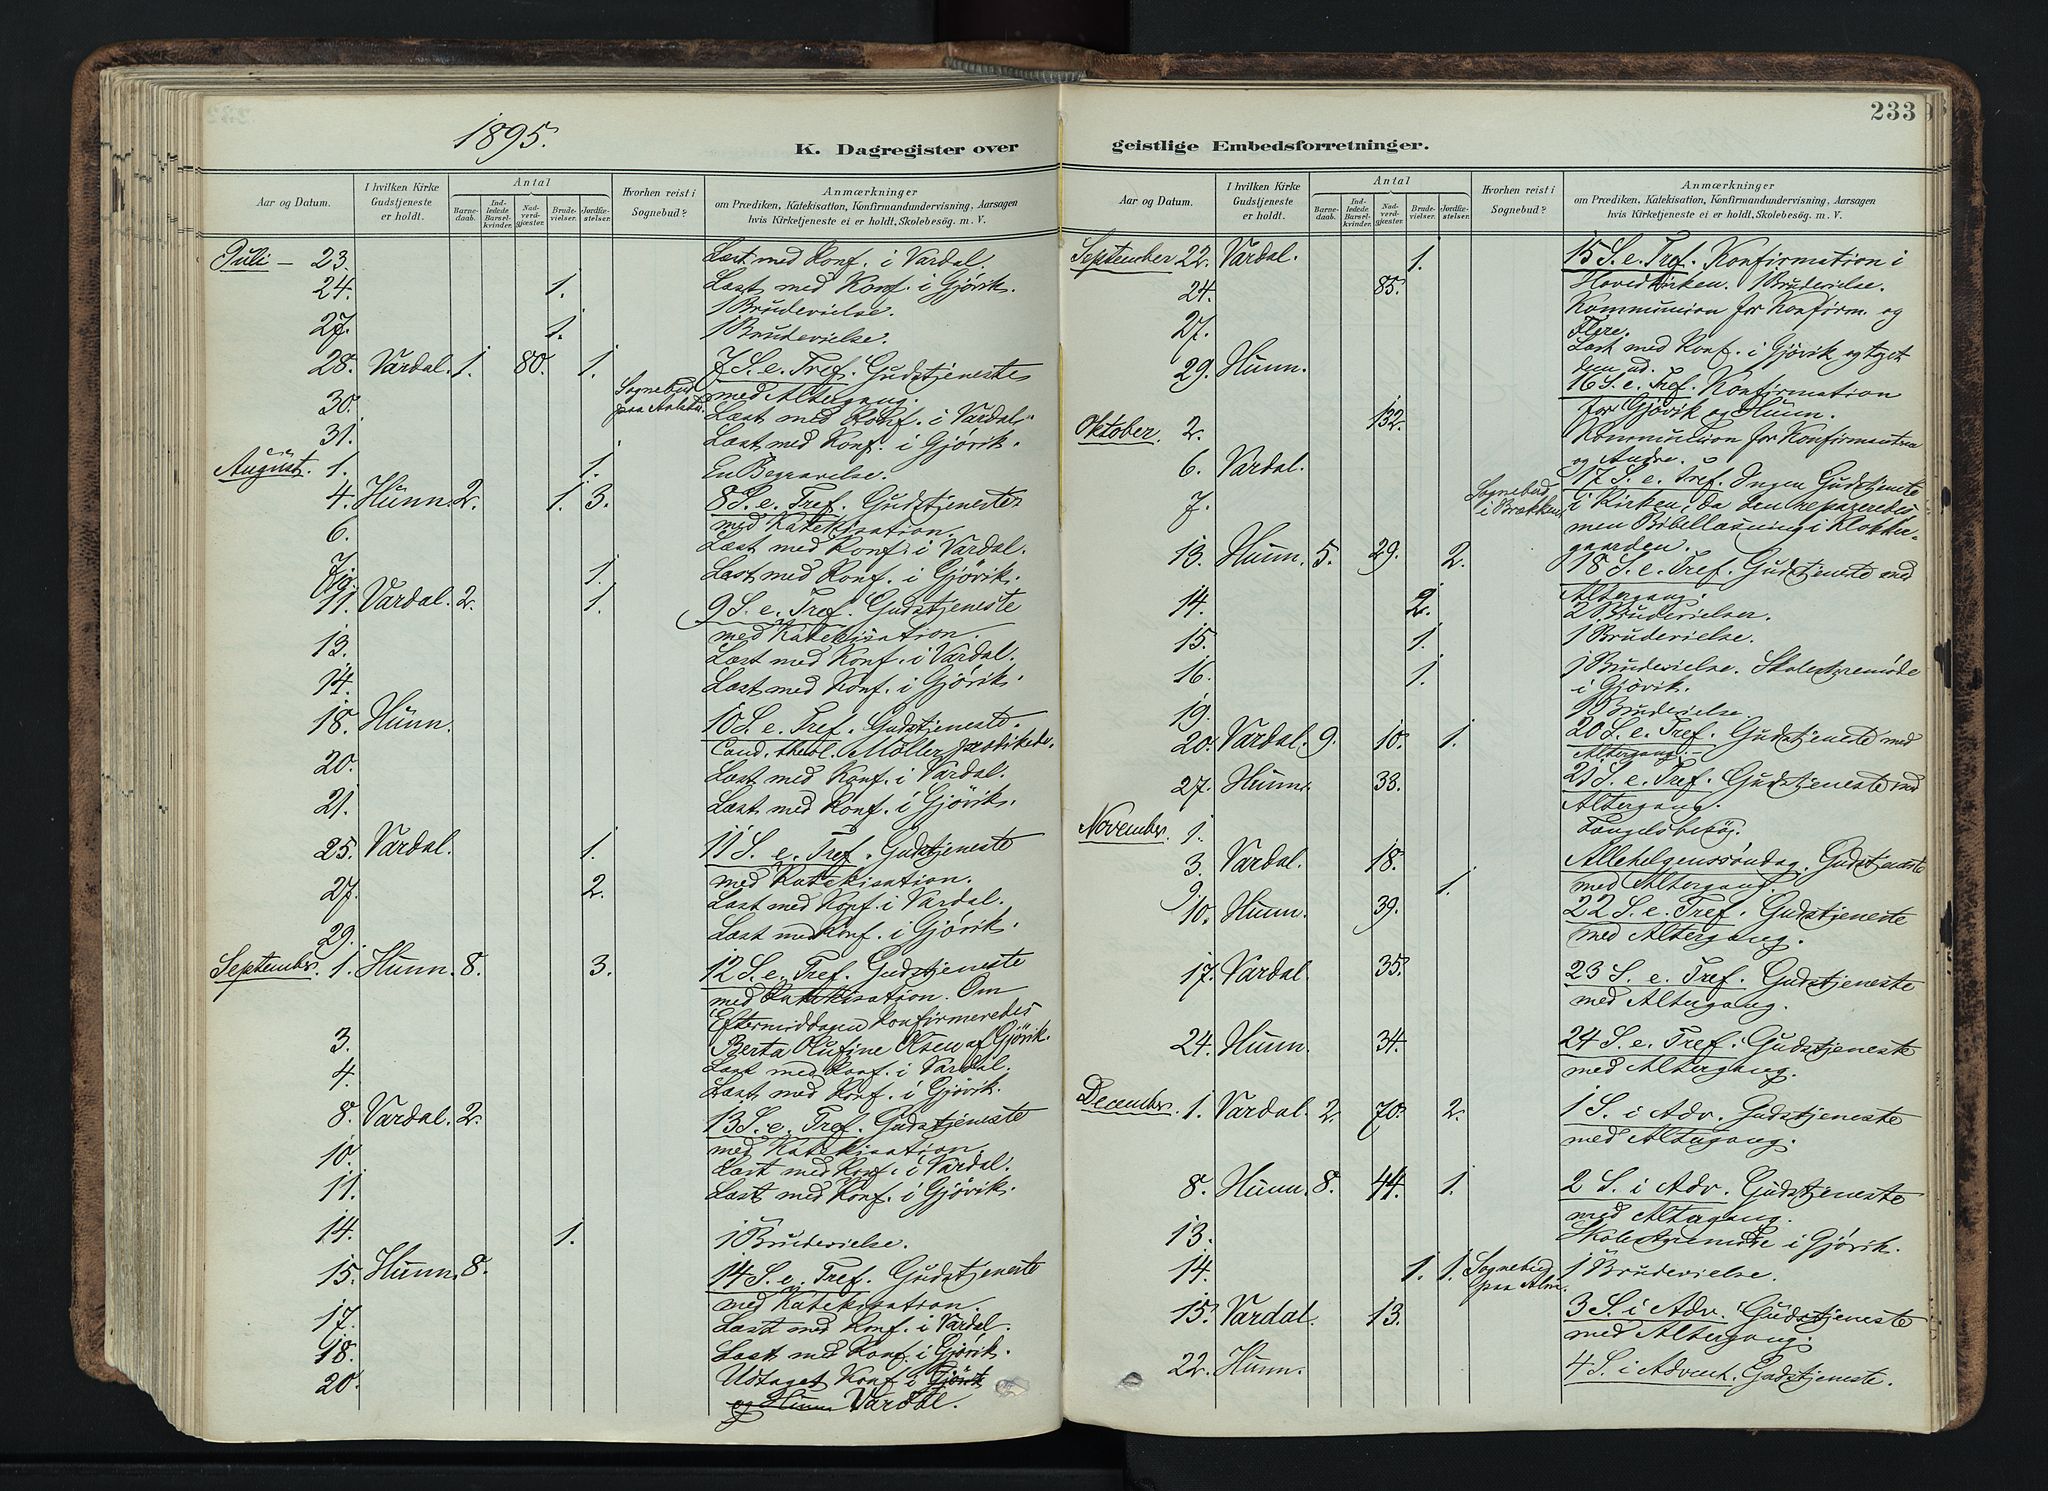 233
1895.
K. Dagregister over geistlige Embedsforretninger.
Aar og Datum.
I hvilken Kirke Gudstjeneste er holdt.
Antal
Barnedaab.
Indledede Barselkvinder.
Nadverdgjæster.
Brudevielser.
Jordfæstelser.
Hvorhen reist i Sognebud?
Anmærkninger
om Prædiken, Katekisation, Konfirmandundervisning, Aarsagen
hvis Kirketjeneste ei er holdt, Skolebesøg. m. V.
Juli — 23. Læst med Konf. i Vardal
24. 1. Læst med Konf. i Gjövik.
1 Brudevielse.
27. 1. 1 Brudevielse.
28. Vardal. 1. 80. 1. 7 S. e. Tref. Gudstjeneste
med Altergang.
30. Sognebud paa Læst med Konf. i Vardal.
31. Læst med Konf. i Gjövik.
August. 1. 1. En Begravelse.
4. Hunn 2. 1. 3. 8 S. e. Tref. Gudstjeneste
med Katekisation.
6. Læst med Konf. i Vardal.
7. 1. Læst med Konf. i Gjövik.
11. Vardal. 2. 1. 9 S. e. Tref. Gudstjeneste
med Katekisation.
13. Læst med Konf. i Vardal.
14. Læst med Konf. i Gjövik.
18. Hunn. 10 S. e. Tref. Gudstjeneste.
Cand. theol. Møller prædikede.
20. Læst med Konf. i Vardal.
21. Læst med Konf. i Gjövik.
25. Vardal. 1. 11 S. e. Tref. Gudstjeneste
med Katekisation.
27. 2. Læst med Konf. i Vardal.
29. Læst med Konf. i Gjövik.
September. 1. Hunn. 8. 3. 12 S. e. Tref. Gudstjeneste
med Katekisation. Om
Eftermiddagen konfirmeredes
Berta Olufine Olsen af Gjövik.
3. Læst med Konf. i Vardal.
4. Læst med Konf. i Gjövik.
8. Vardal. 2. 13 S. e. Tref. Gudstjeneste
med Katekisation.
10. Læst med Konf. i Vardal.
11. Læst med Konf. i Gjövik.
14. 1. 1 Brudevielse.
15. Hunn. 8. 14 S. e. Tref. Gudstjeneste
med Katekisation.
17. Læst med Konf. i Vardal.
18. Læst med Konf. i Gjövik.
20. Udtaget Konf. i Gjövik
og Hunn Vardal.
Aar og Datum.
I hvilken Kirke Gudstjeneste er holdt.
Antal
Barnedaab.
Indledede Barselkvinder.
Nadverdgjæster.
Brudevielser.
Jordfæstelser.
Hvorhen reist i Sognebud?
Anmærkninger
om Prædiken, Katekisation, Konfirmandundervisning, Aarsagen
hvis Kirketjeneste ei er holdt, Skolebesøg. m. V.
September 22. Vardal. 1. 15 S. e. Tref. Konfirmation i
Hovedkirken. 1 Brudevielse.
24. 85. Kommunion for Konfirm. og
Flere.
27. Læst med Konf. i Gjövik og taget
dem ud.
29. Hunn. 16 S. e. Tref. Konfirmation
for Gjövik og Hunn.
Oktober. 2. 132. Kommunion for Konfirmanterne
og Andre.
6. Vardal. 17 S. e. Tref. Ingen Gudstjeneste
i Kirken, da den repareredes
men Bibellæsning i Klokkergaarden.
7. Sognebud i Brækken
13. Hunn. 5. 29. 2. 18 S. e. Tref. Gudstjeneste med
Altergang.
14. 2. 2 Brudevielser.
15. 1. 1 Brudevielse.
16. 1. 1 Brudevielse. Skolestyremöde
i Gjövik.
19. 1 Brudevielse
20. Vardal. 9. 10. 1. 20 S. e. Tref. Gudstjeneste med
Altergang.
27. Hunn. 38. 21 S. e. Tref. Gudstjeneste med
Altergang.
November. 1. Fængelsbesøg.
3. Vardal. 18. Allehelgenssöndag. Gudstjeneste
med Altergang.
9. 1.
10. Hunn. 39. 22 S. e. Tref. Gudstjeneste
med Altergang.
17. Vardal. 35. 23 S. e. Tref. Gudstjeneste
med Altergang.
24. Hunn. 34. 24 S. e. Tref. Gudstjeneste
med Altergang.
December. 1. Vardal. 2. 70. 2. 1 S. i Adv. Gudstjeneste
med Altergang.
8. Hunn. 8. 44. 1. 2 S. i Adv. Gudstjeneste
med Altergang.
13. Skolestyremöde i Gjövik.
14. 1. 1. Sognebud paa 1 Brudevielse.
15. Vardal. 13. 3 S. i Adv. Gudstjeneste
med Altergang.
22. Hunn. 4 S. i Advent. Gudstjeneste.